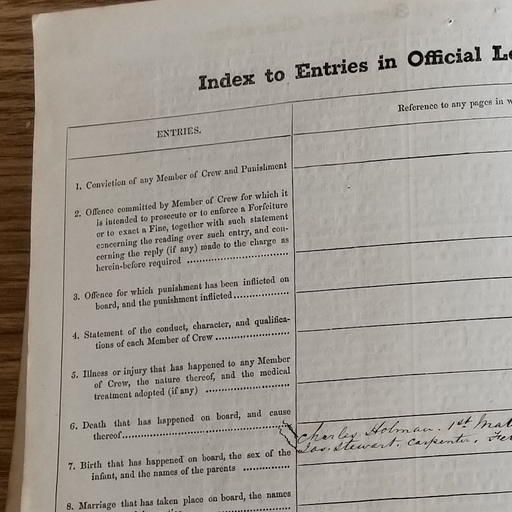 Index to Entries in Official
ENTRIES.
Reference to any pages in
1. Conviction of any Member of Crew and Punishment
2. Offence committed by Member of Crew for which it
is intended to prosecute or to enforce a Forfeiture
or to exact a Fine, together with such statement
concerning the reading over such entry, and con-
cerning the reply (if any) made to the charge as
herein-before required
3. Offence for which punishment has been inflicted on
board, and the punishment inflicted
4. Statement of the conduct, character, and qualifica-
tions of each Member of Crew
5. Illness or injury that has happened to any Member
of Crew, the nature thereof, and the medical
treatment adopted (if any)
6. Death that has happened on board, and cause
thereof
Charley Holman. 1st Mat
Jas. Stewart. Carpenter,
7. Birth that has happened on board, the sex of the
infant, and the names of the parents
8. Marriage that has taken place on board, the names